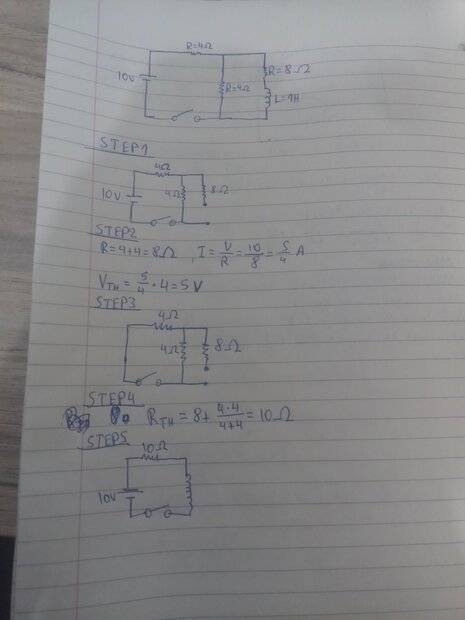 R=4Ω
10V
R=4Ω
R=8Ω
L=1H
STEP1
4Ω
10V
4Ω
8Ω
STEP2
R=4+4=8Ω , I=V/R=10/8=5/4 A
VTH=5/4·4=5V
STEP3
4Ω
4Ω
8Ω
STEP4
RTH=8+4·4/4+4=10Ω
STEP5
10Ω
10V